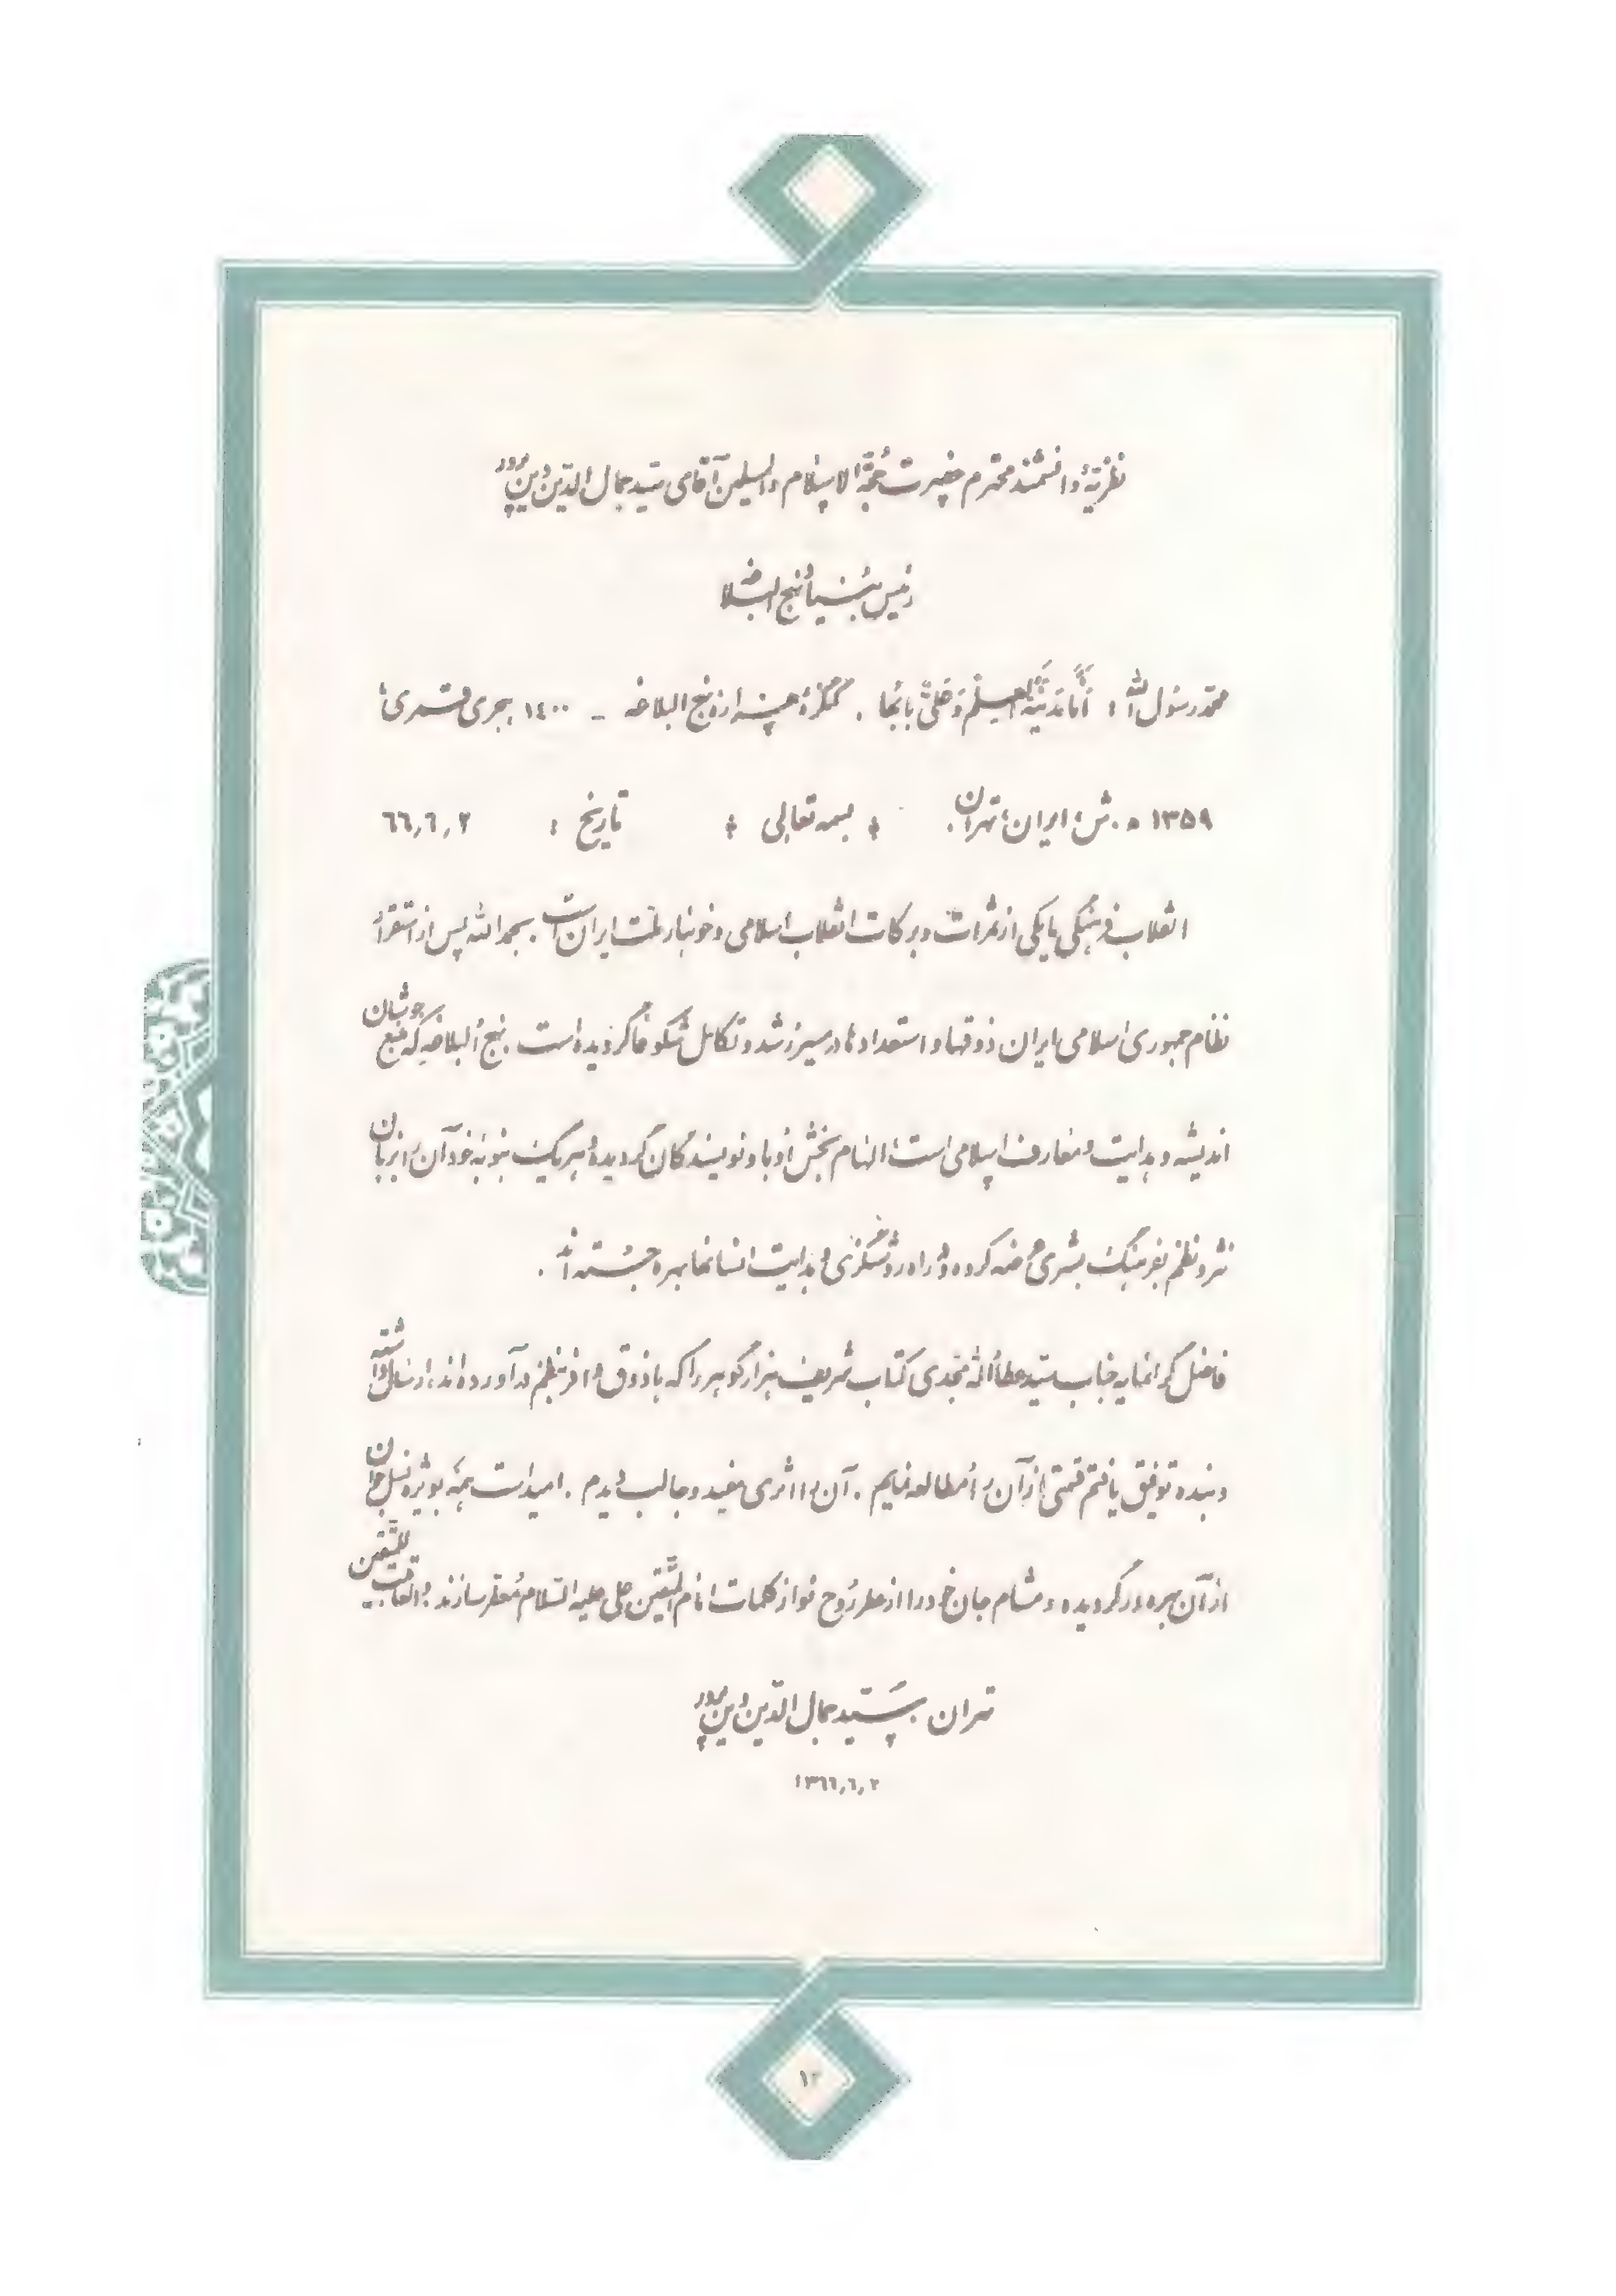 نظریهٔ دانشمند محترم حضرت حُجّة الاسلام والمسلمین آقای سید جمال الدین دین پرور
رئیس بنیاد نهج البلاغه
محمد رسول الله : أَنَا مَدینَةُ الْعِلْمِ وَ عَلِیٌّ بابُها . کنگرهٔ هزارهٔ نهج البلاغه – ١٤٠٠ هجری قمری ؛
١٣٥٩ ه . ش ؛ ایران ؛ تهران . * بسمه تعالی * تاریخ : ٦٦,٦,٢
انقلاب فرهنگی یا یکی از ثمرات و برکات انقلاب اسلامی و خونبار ملّت ایران است . بحمد الله پس از استقرار
نظام جمهوری اسلامی ایران ذوقها و استعدادها در مسیر رشد و تکامل شکوفا گردیده است . نهج البلاغه که منبع جوشان
اندیشه و هدایت و معارف اسلامی است ؛ الهام بخش ادبا و نویسندگان گردیده و هر یک بنوبه خود آن را بزبان
نثر و نظم بفرهنگ بشری عرضه کرده و در راه روشنگری و هدایت انسانها بهره جسته اند .
فاضل گرانمایه جناب سید عطاء الله مجدی کتاب شریف هزار گوهر را که با ذوق وافر بنظم در آورده اند ، ارسال داشته
و بنده توفیق یافتم قسمتی از آن را مطالعه نمایم . آن را اثری مفید و جالب دیدم . امید است همه بویژه نسل جوان
از آن بهره ور گردیده و مشام جان خود را از عطر رُوح نواز کلمات امام المتّقین علی علیه السّلام معطر سازند ؛ والعاقبة للمتّقین
تهران . سَیّد جمال الدّین دین پرور
١٣٦٦,٦,٢
١٢